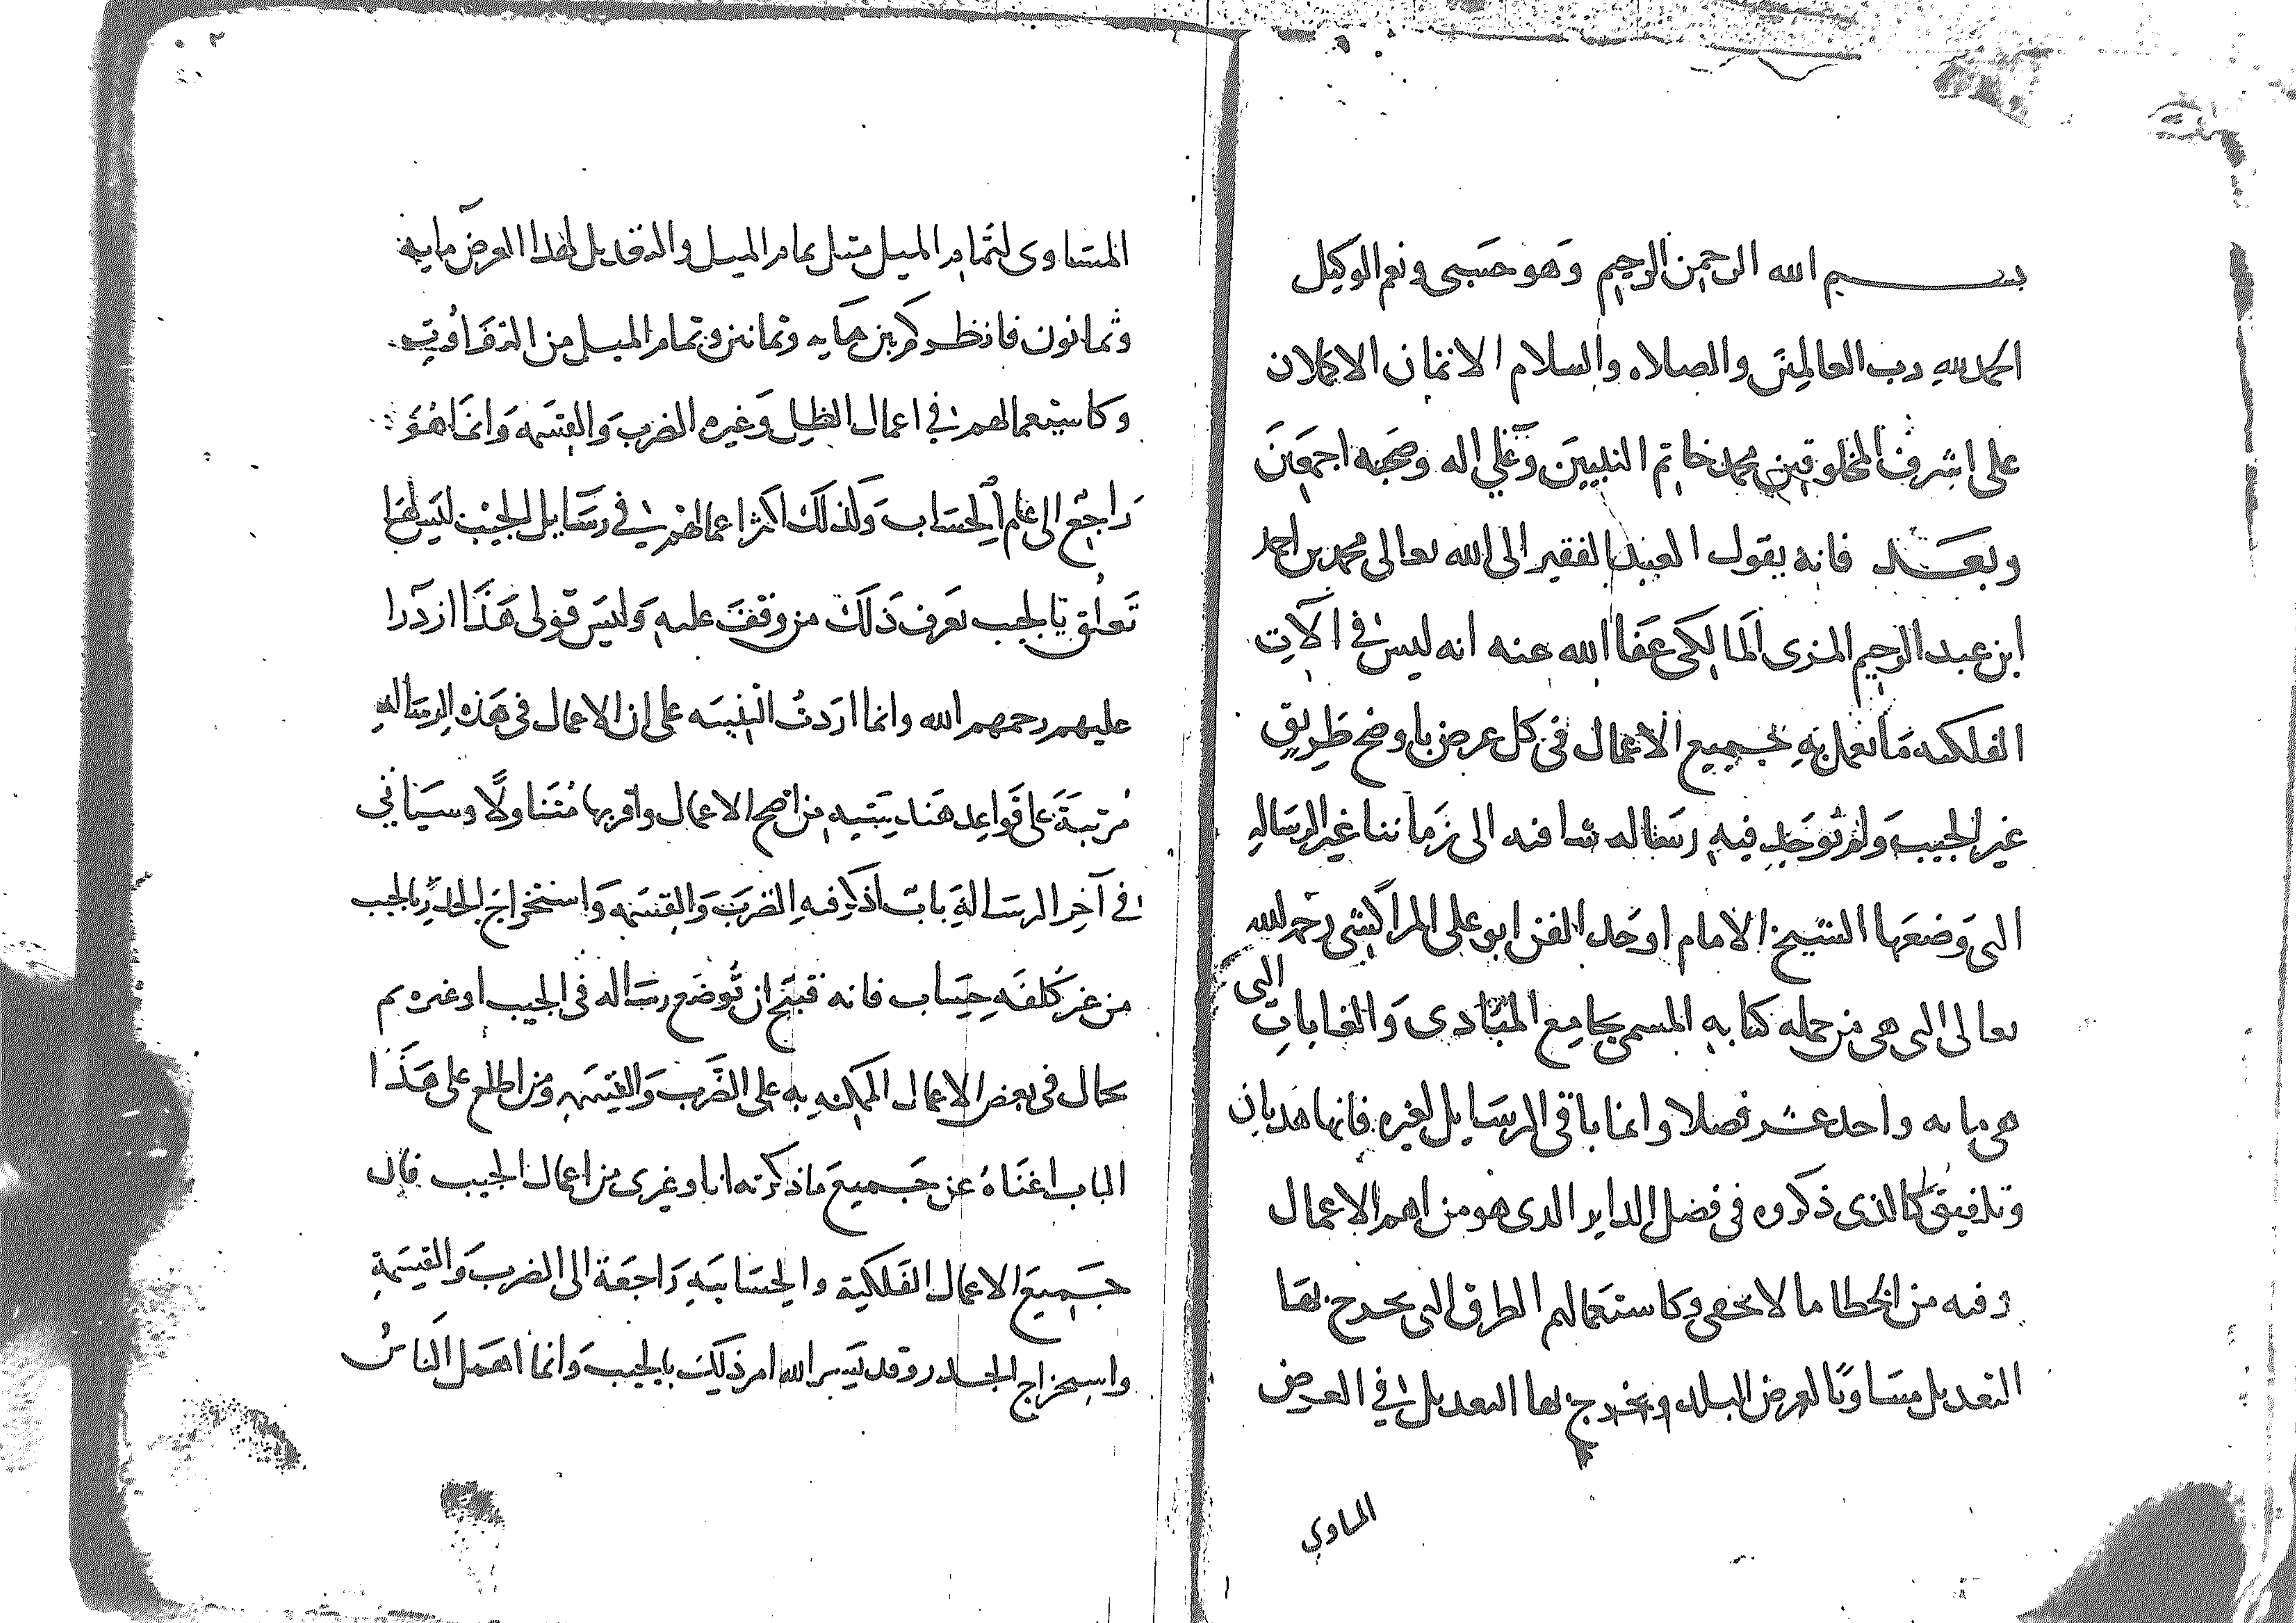 بسم الله الرحمن الرحيم وهو حسبى ونعم الوكيل
الحمد لله رب العالمين والصلاه والسلام الاتمان الاكملان
على اشرف المخلوقين محمد خاتم النبيين وعلى اله وصحبه اجمعين
وبعد فانه يقول العبد الفقير الى الله تعالى محمد بن احمد
ابن عبد الرحيم المزى المالكى عفا الله عنه انه ليس فى الآت
الفلكيه ما تعمل به جميع الاعمال فى كل عرض باوضح طريق
غير الجيب ولم توجد فيه رساله شافيه الى زماننا غير الرساله
التى وضعها الشيخ الامام اوحد الفن ابو على المراكشى رحمه الله
تعالى التى هى من جمله كتابه المسمى بجامع المبادى والغايات التى
هى مايه واحد عشر فصلا وانما باقى الرسايل لغيره فانها هديان
وتلفيق كالذى ذكروه فى فضل الداير الدى هو من اهم الاعمال
وفيه من الخطا ما لا يخفى وكاستعمالهم الطرق التى يخرج بها
التعديل مساويا لعرض البلد ويخرج بها التعديل فى العرض
المساوي
٢
المساوى لتمام الميل مثل تمام الميل والتعديل لهذا العرض مايه
وثمانون فانظر كم بين مايه وثمانين وتمام الميل من التفاوت
وكاستعمالهم فى اعمال الظل وغيره الضرب والقسمه وانما هو
راجع الى علم الحساب وكذلك اكثر اعمالهم فى رسايل الجيب ليس لها
تعلق بالجيب يعرف ذلك من وقف عليه وليس قولى هذا ازدرا
عليهم رحمهم الله وانما اردت التنبيه على ان الاعمال فى هذه الرساله
مرتبة على قواعد هندسيه من اصح الاعمال واقربها متناولا وسياتى
فى آخر الرسالة باب اذكر فيه الضرب والقسمه واستخراج الجذر بالجيب
من غير كلفه حساب فانه قبيح ان توضع رساله فى الجيب او غيره ثم
يحال فى بعض الاعمال الممكنه به على الضرب والقسمه ومن اطلع على هذا
الباب اغناه عن جميع ما ذكرته انا وغيرى من اعمال الجيب فان
جميع الاعمال الفلكية والحسابيه راجعة الى الضرب والقسمة
واستخراج الجدر وقد يسر الله امر ذلك بالجيب وانما اهمل الناس